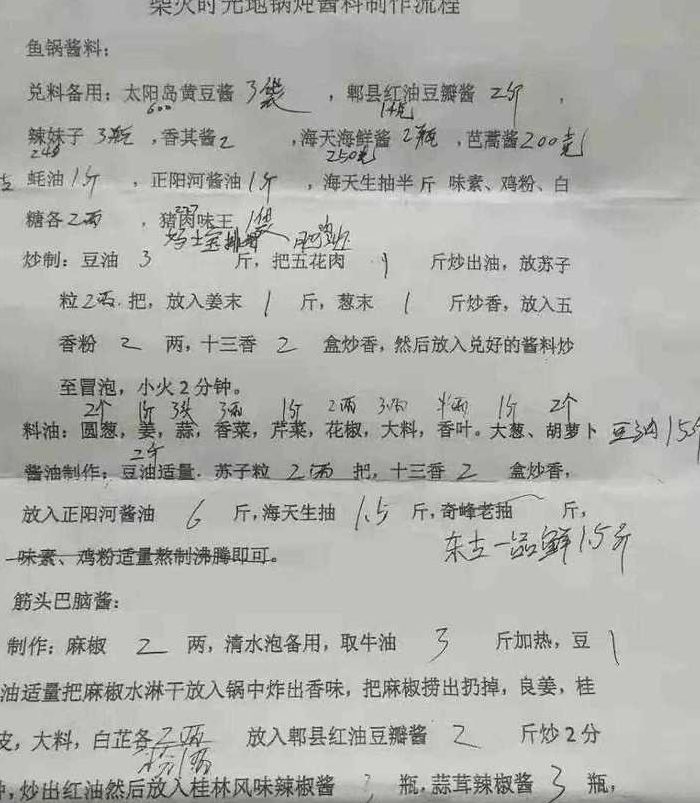 柴火时光地锅炖酱料制作流程
鱼锅酱料：
兑料备用：太阳岛黄豆酱 3袋 ，郫县红油豆瓣酱 2斤 ，
600
辣妹子 3瓶 ，香其酱2 ，海天海鲜酱 2瓶，芭蒿酱200克
248 250克
蚝油 1斤 ，正阳河酱油 1斤 ，海天生抽半斤 味素、鸡粉、白
糖各2两 ，猪肉味王 1袋
炒制：豆油 3 斤，把五花肉 1 斤炒出油，放苏子
粒2两.把，放入姜末 1 斤，葱末 1 斤炒香，放入五
香粉 2 两，十三香 2 盒炒香，然后放入兑好的酱料炒
至冒泡，小火2分钟。
2个 1斤 3头 3两 1斤 2两 3两 半两 1斤 2个
料油：圆葱，姜，蒜，香菜，芹菜，花椒，大料，香叶。大葱、胡萝卜 豆油15斤
2斤
酱油制作：豆油适量. 苏子粒 2两 把，十三香 2 盒炒香，
放入正阳河酱油 6 斤，海天生抽 1.5 斤，奇峰老抽 斤，
东古一品鲜1.5斤
味素、鸡粉适量熬制沸腾即可。
筋头巴脑酱：
制作：麻椒 2 两，清水泡备用，取牛油 3 斤加热，豆 1
油适量把麻椒水淋干放入锅中炸出香味，把麻椒捞出扔掉，良姜，桂
皮，大料，白芷各2两 放入郫县红油豆瓣酱 2 斤炒2分
钟，炒出红油然后放入桂林风味辣椒酱 瓶，蒜茸辣椒酱 3 瓶，